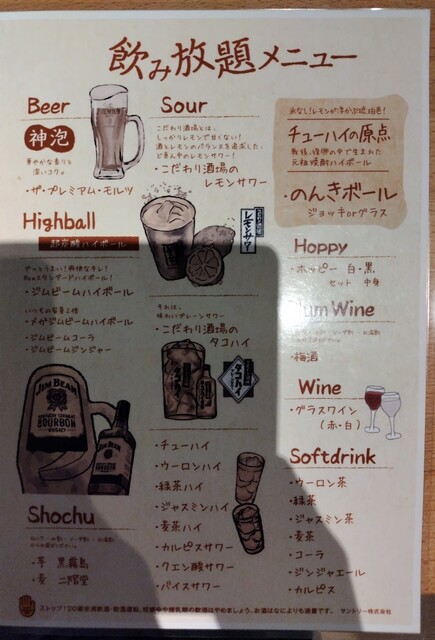 飲み放題メニュー
Beer
神泡
華やかな香りと
深いコク。
・ザ・プレミアム・モルツ
Highball
超炭酸ハイボール
・ジムビームハイボール
・メガジムビームハイボール
・ジムビームコーラ
・ジムビームジンジャー
JIM BEAM
BOURBON
JIM BEAM
Shochu
・芋 黒霧島
・麦 二階堂
Sour
こだわり酒場とは、
しっかりレモンで甘くない!
酒とレモンのバランスを追求した、
ど真ん中のレモンサワー!
・こだわり酒場の
レモンサワー
レモンサワー
・こだわり酒場の
タコハイ
タコハイ
タコハイ
・チューハイ
・ウーロンハイ
・緑茶ハイ
・ジャスミンハイ
・麦茶ハイ
・カルピスサワー
・クエン酸サワー
・バイスサワー
チューハイの原点
元祖焼酎ハイボール
・のんきボール
ジョッキorグラス
Hoppy
・ホッピー 白・黒
セット 中身
Plum Wine
・梅酒
Wine
・グラスワイン
(赤・白)
Softdrink
・ウーロン茶
・緑茶
・ジャスミン茶
・麦茶
・コーラ
・ジンジャエール
・カルピス
ストップ!20歳未満飲酒・飲酒運転。妊娠中や授乳期の飲酒はやめましょう。お酒はなによりも適量です。 サントリー株式会社